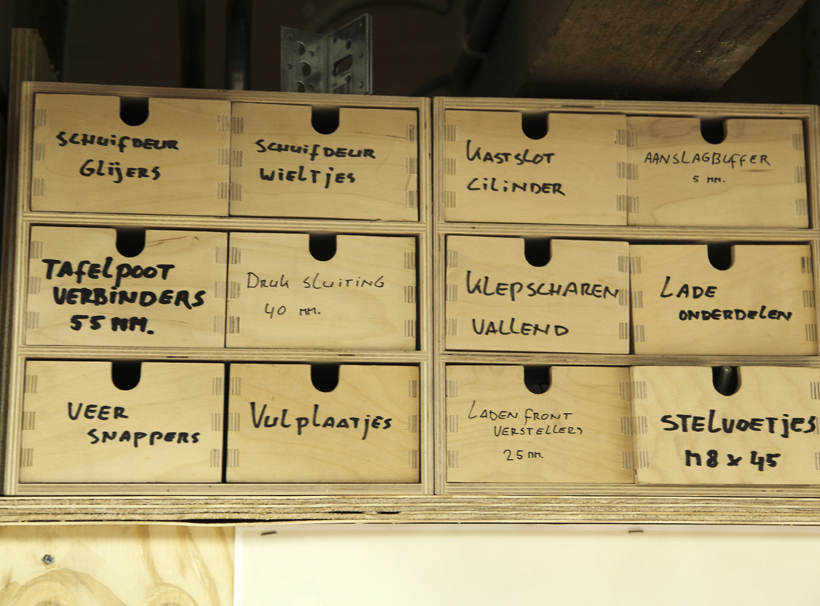 SCHUIFDEUR
GLIJERS
SCHUIFDEUR
WIELTJES
KASTSLOT
CILINDER
AANSLAGBUFFER
5 MM.
TAFELPOOT
VERBINDERS
55 MM.
DRUK SLUITING
40 MM.
KLEPSCHAREN
VALLEND
LADE
ONDERDELEN
VEER
SNAPPERS
VULPLAATJES
LADEN FRONT
VERSTELLERS
25 MM
STELVOETJES
M8 x 45